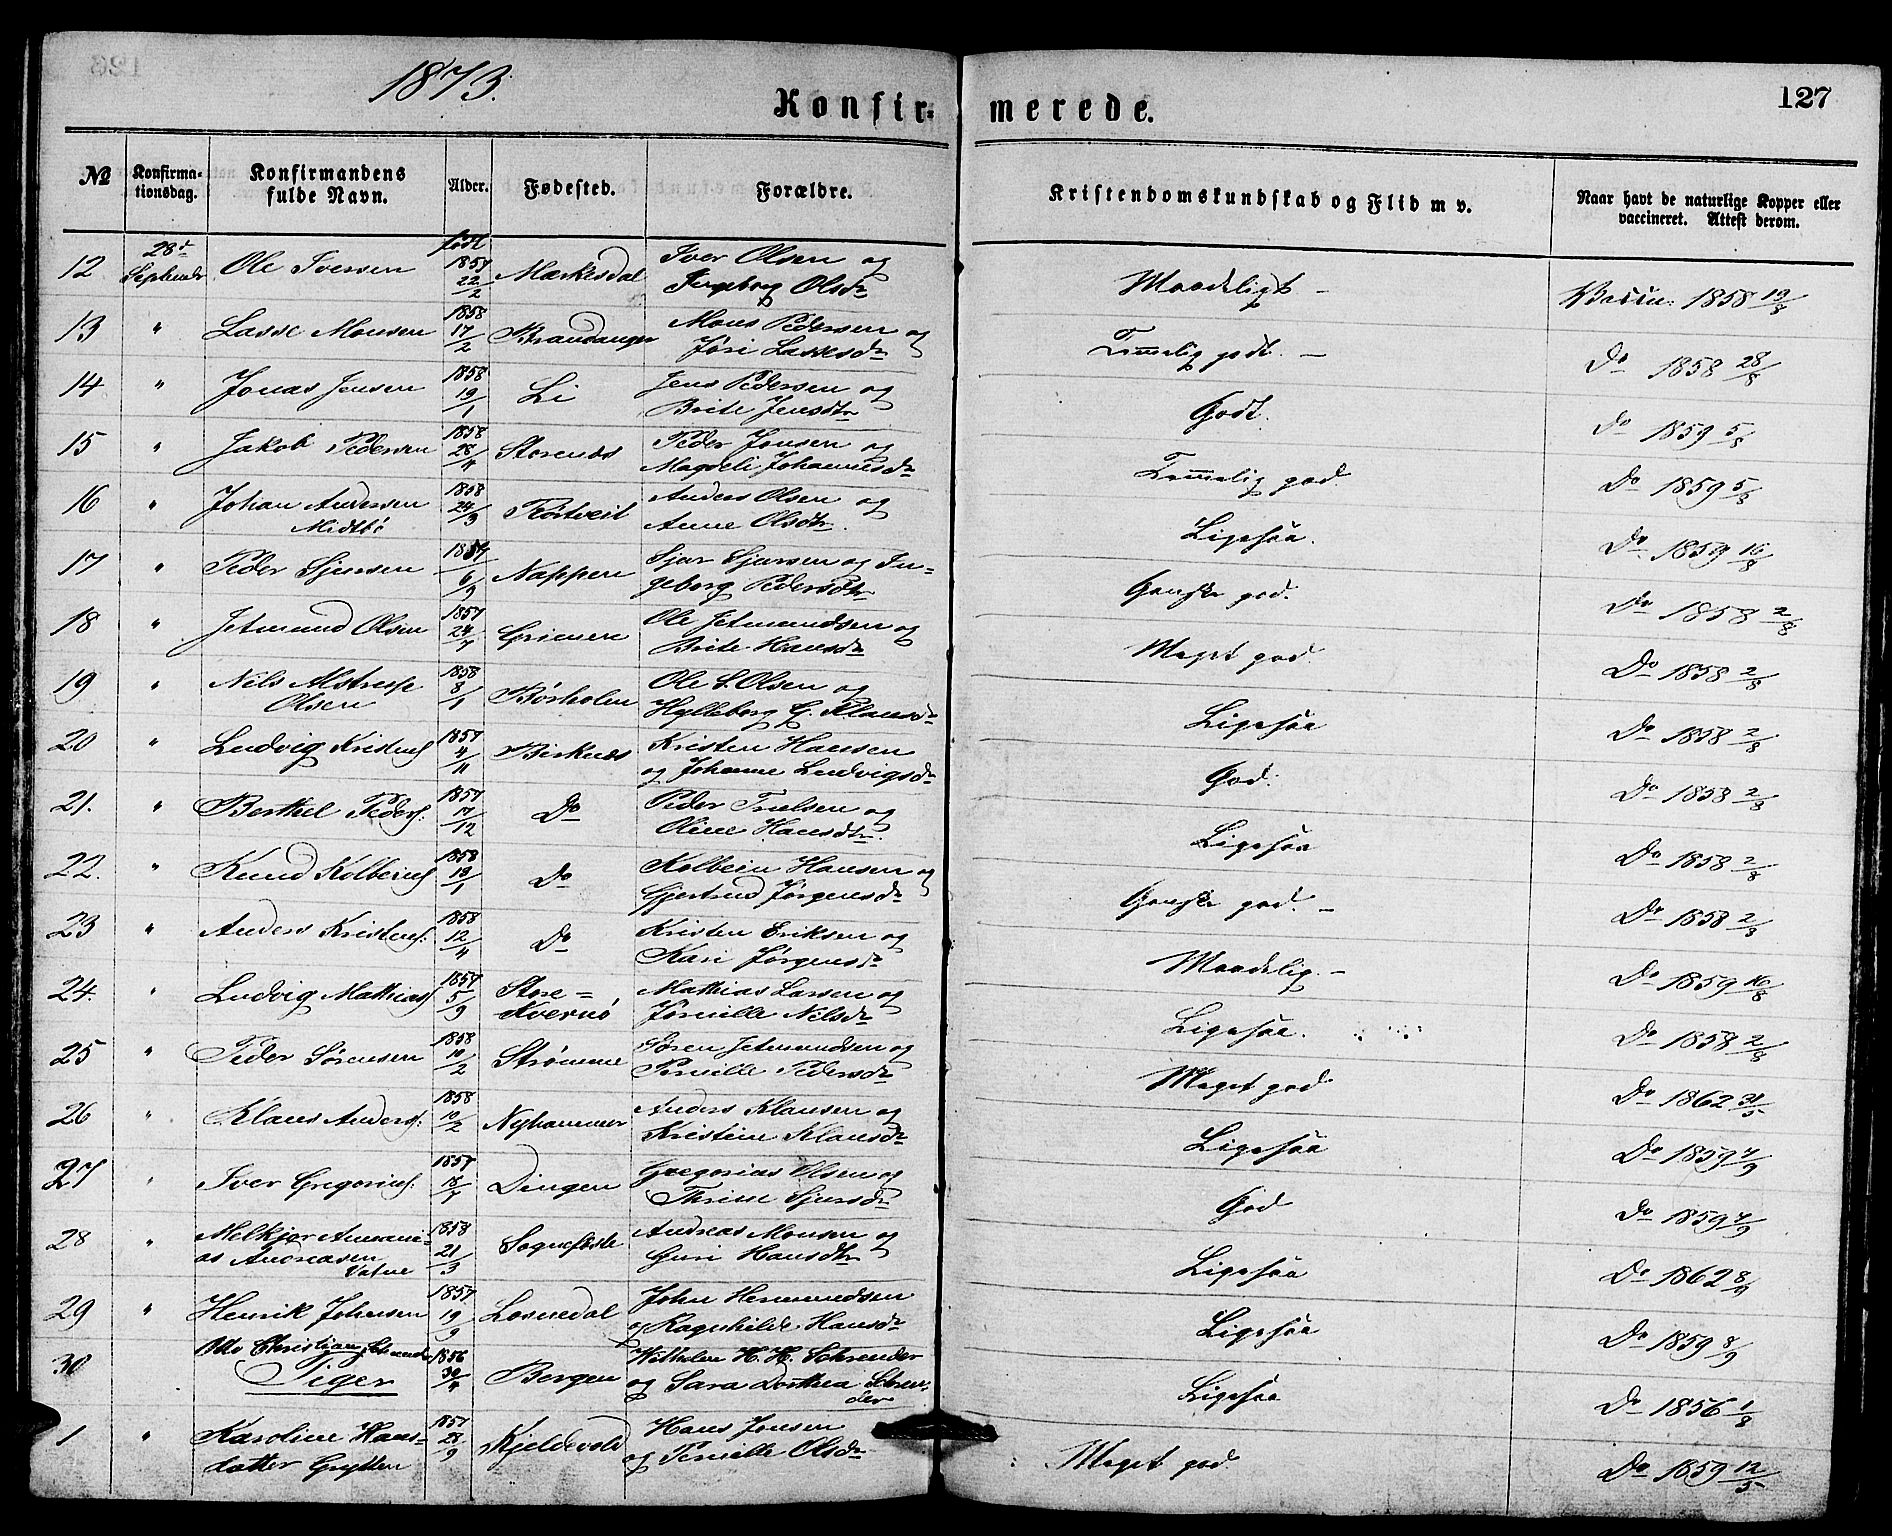 1873.
Konfirmerede.
127
№ Konfirmationsdag. Konfirmandens fulde Navn. Alder. Fødested. Forældre. Kristendomskundskab og Flid m v. Naar havt de naturlige Kopper eller vaccineret. Attest derom.
12 28d Septembr Ole Iversen født 1857 22/2 Mærkesdal Iver Olsen og Ingeborg Olsdr Maadeligt – Vaccin: 1858 19/8
13 " Lasse Monsen 1858 17/2 Brandanger Mons Pedersen og Jøri Lassesdr Temmelig godt. – Do 1858 28/8
14 " Jonas Jensen 1858 19/1 Li Jens Pedersen og Brite Jensdtr Godt. Do 1859 5/8
15 " Jakob Pedersen 1858 28/4 Storenes Peder Jonsen og Magdeli Johannesdr Temmelig god Do 1859 5/8
16 " Johan Andersen Midtbö 1858 24/3 Andees Olsen og Anne Olsdtr. Ligesaa. Do 1859 16/8
17 " Peder Sjursen 1857 6/9 Nappen Sjur Sjursen og Ingeborg Pedersdtr Ganske god. Do 1858 2/8
18 " Jetmund Olsen 1857 24/7 Grimen Ole Jetmundsen og Brite Hansdr Meget god. Do 1858 2/8
19 " Nils Alstrup Olsen 1858 8/1 Børholen Ole L. Olsen og Hylleborg G. Klausdr Ligesaa Do 1858 2/8
20 " Ludvig Kristens 1857 4/11 Birknes Kristen Hansen og Johanne Ludvigsdr God. Do 1858 2/8
21. " Berthel Peders. 1857 17/12 Do Peder Truelsen og Oline Hansdtr. Ligesaa Do 1858 2/8
22. " Knud Kolbeins 1858 13/1 Do Kolbein Hansen og Gjertrud Jørgensdr Ganske god. – Do 1858 2/8
23 " Anders Kristens. 1858 12/4 Do Kristen Eriksen og Kari Jørgensdr Maadelig. – Do 1859 16/8
24. " Ludvig Mathias 1857 5/9 Store-Kvernö Mathias Larsen og Pernille Nilsdr Ligesaa. Do 1858 2/8
25 " Peder Sørensen 1858 10/2 Strømme Søren Jetmundsen og Pernille Pedersdr Meget god Do 1862 31/5
26 " Klaus Anders. 1858 10/2 Nyhammer Anders Klausen og Kristine Klausdr Ligesaa Do 1859 7/9
27 " Iver Gregorius. 1857 18/7 Dingen Gregorius Olsen og Thrine Sjursdr God Do 1859 7/9
28 " Melkjor Annanias Andreasen Vatne 1858 21/3 Sognefæste Andreas Monsen og Guri Hansdtr Ligesaa Do 1862 8/9
29 " Henrik Johnsen 1857 19/9 Losnedal John Hermundsen og Ragnhilde Hansdr Ligesaa Do 1859 8/9
30 Otto Christian Schreuder Tiger 1856 30/4 Bergen Wilhelm H. H. Schreuder og Sara Dorthea Schreuder Ligesaa Do 1856 1/8
1 " Karoline Hansdatter Grytten 1857 28/9 Kjeldevold Hans Jensen og Pernille Olsdr Meget god. Do 1859 12/5